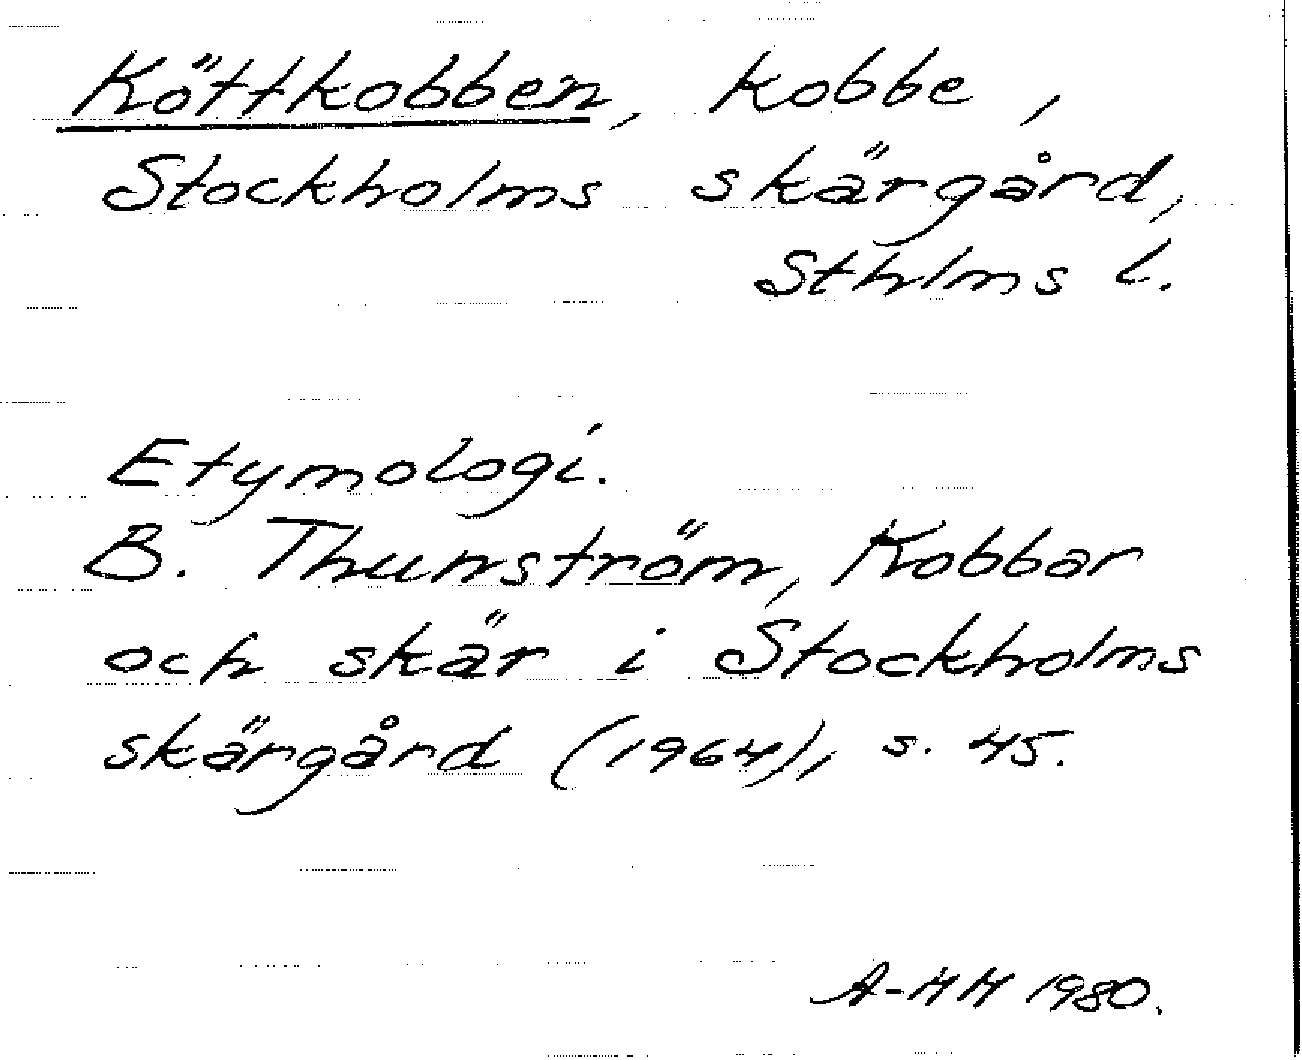 Köttkobben, kobbe,
Stockholms skärgård,
Sthlms l.
Etymologi.
B. Thunström, Kobbar
och skär i Stockholms
skärgård (1964), s. 45.
A-HH 1980.